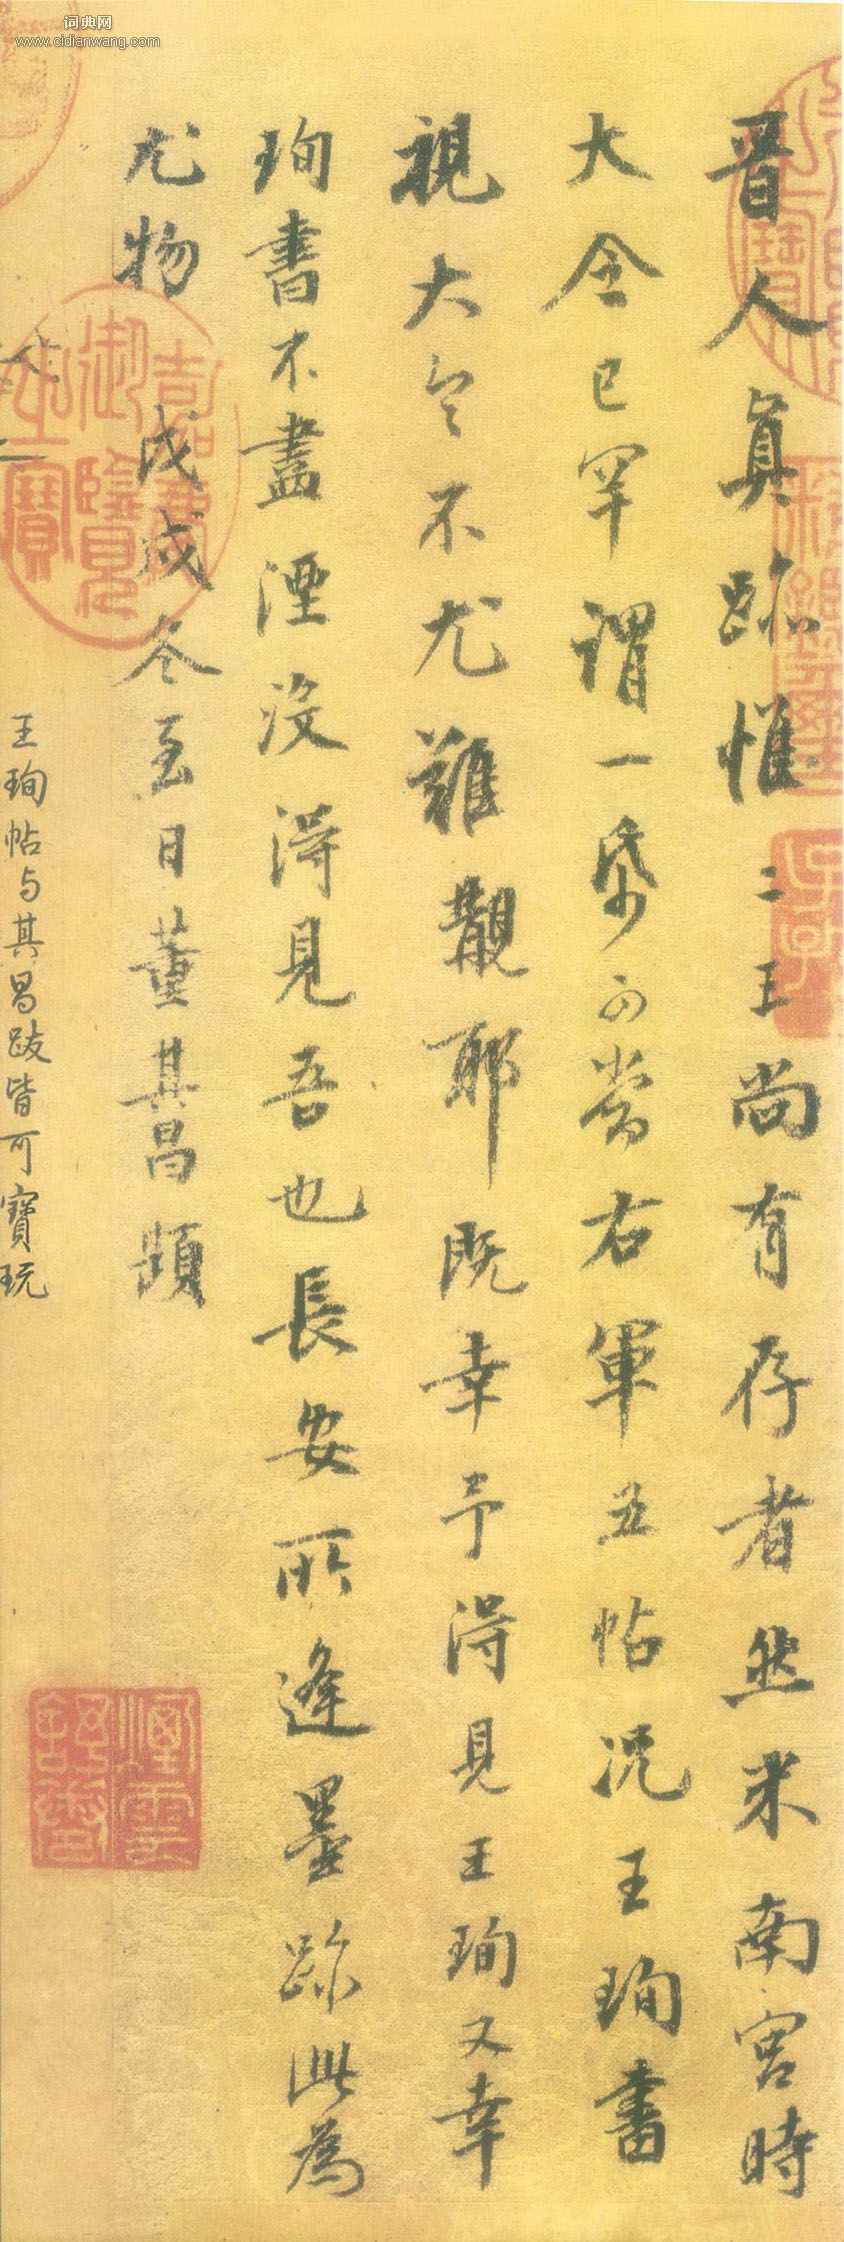 词典网
www.cidianwang.com
晋人真跡惟二王尚有存者然米南宮時
大令已罕謂一帋可當右軍五帖况王珣書
視大令不尤難覯耶既幸予得見王珣又幸
珣書不盡湮沒得見吾也長安所逢墨跡此為
尤物 戊戌冬至日董其昌題
王珣帖与其昌跋皆可寶玩
嘉慶御覽之寶